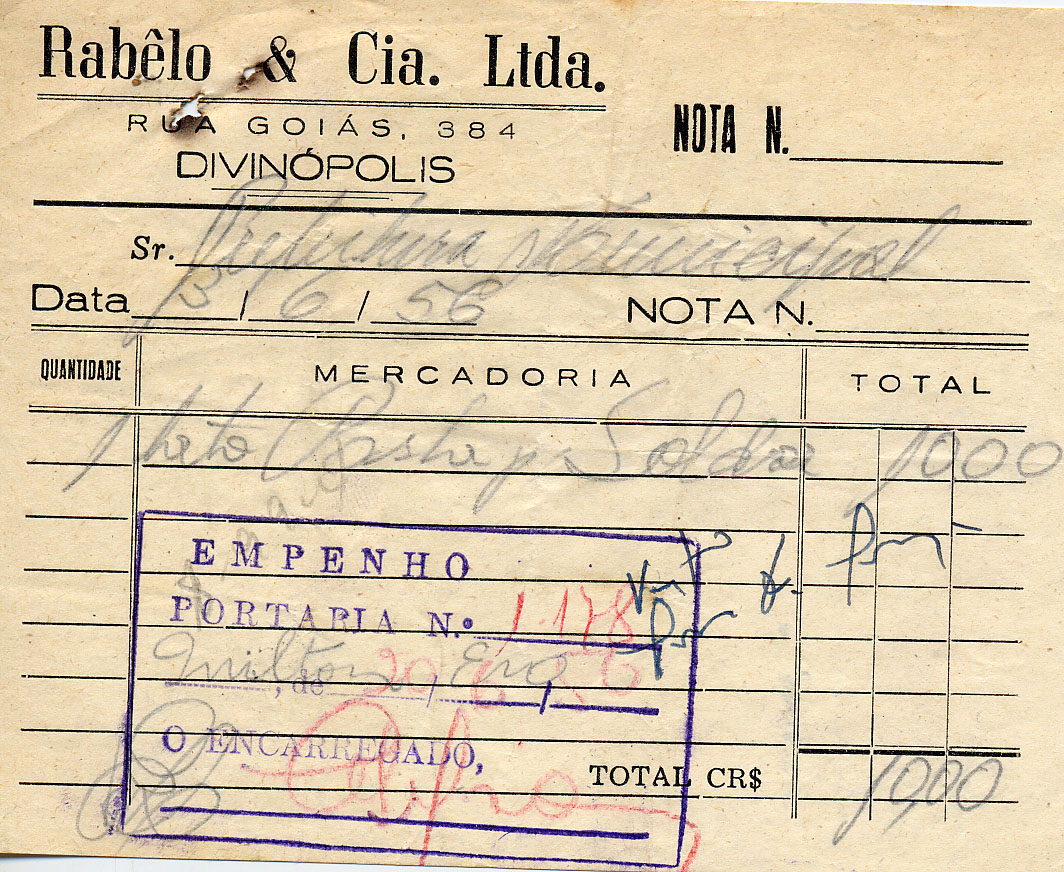 Rabêlo & Cia. Ltda.
RUA GOIÁS, 384
DIVINÓPOLIS
NOTA N.
Sr. Prefeitura Municipal
Data 3/6/56 NOTA N.
QUANTIDADE MERCADORIA TOTAL
1 Soldar 1000
EMPENHO
PORTARIA N.º 1.178
Milton
, de 20/6/56
O ENCARREGADO,
TOTAL CR$ 1000